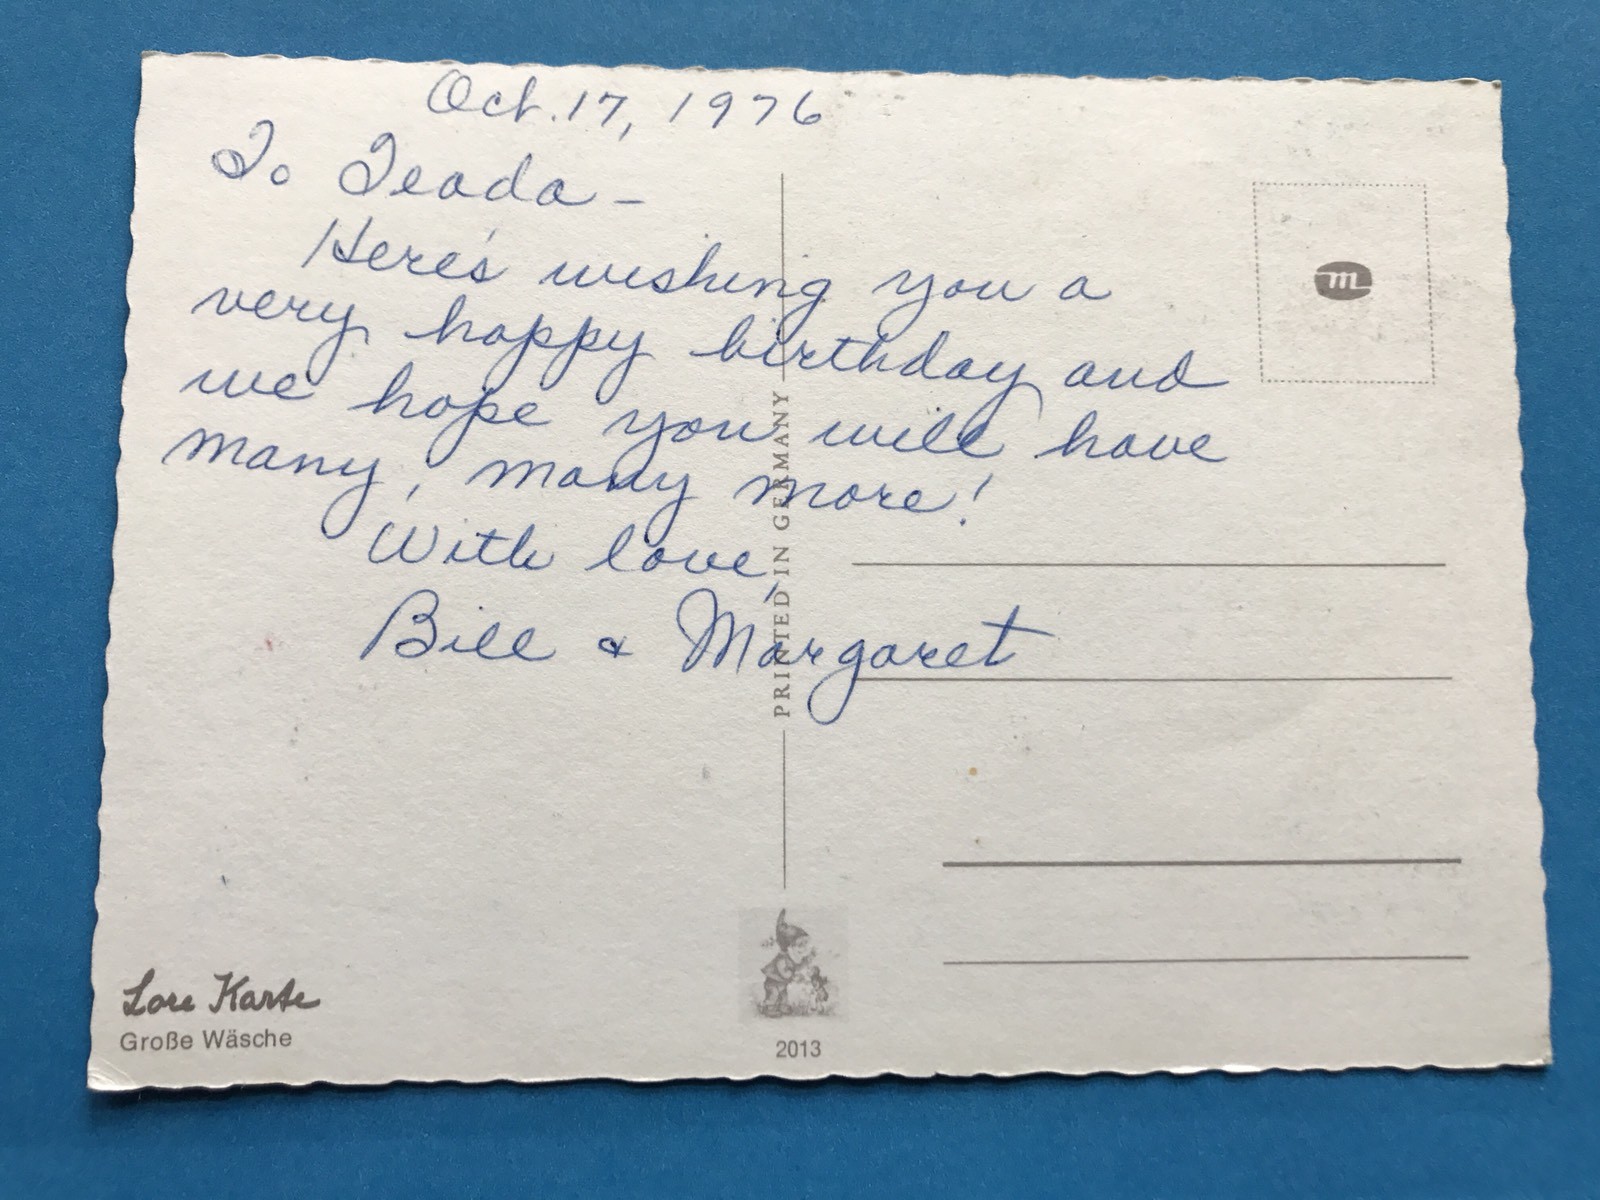 Oct. 17, 1976
To Teada -
Here's wishing you a
very happy birthday and
we hope you will have
many, many more!
With love,
Bill & Margaret
PRINTED IN GERMANY
m
Lore Karte
Große Wäsche
2013